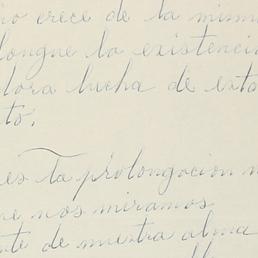 crece de la misma
longue la existencia
dora lucha de esta
to.
es la prolongacion
nos miramos
te de nuestra alma